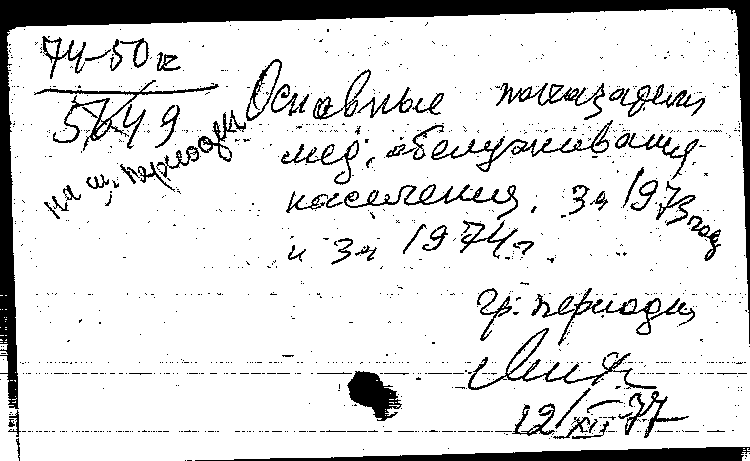 74-50к
5649
Основные показатели
мед. обслуживания
населения. За 1973 год
и за 1974 г.
на
гр. периодики
12/XII 77